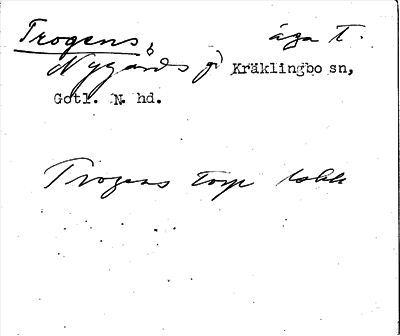 Trogens, åga t.
Nygårds gd Kräklingbo sn,
Gotl. N. hd.
Trogens torp